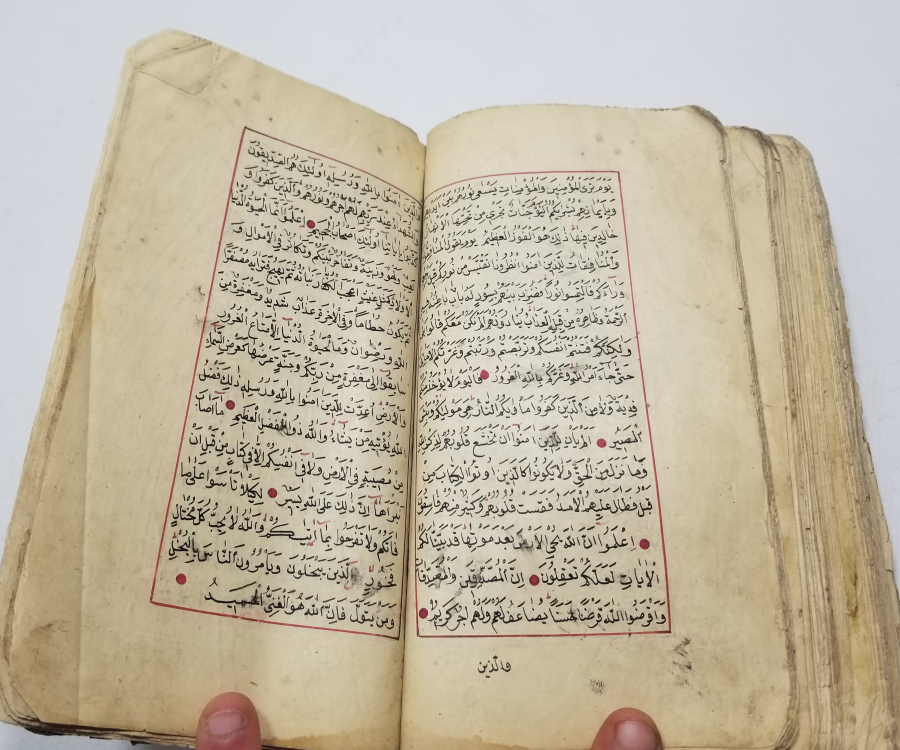 يوم ترى المؤمنين والمؤمنات يسعى نورهم بين
وبايمانهم بشريكم اليوم جنات تجري من تحتها الانهار
خالدين فيها ذلك هو الفوز العظيم يوم يقول المنافقون
والمنافقات للذين امنوا انظرونا نقتبس من نوركم قيل
وراءكم فالتمسوا نورا فضرب بينهم بسور له باب باطنه
الرحمة وظاهره من قبله العذاب ينادونهم الم نكن معكم قالوا
ولكنكم فتنتم انفسكم وتربصتم وارتبتم وغرتكم الاماني
حتى جاء امر الله وغركم بالله الغرور فاليوم لا يؤخذ منكم
فدية ولا من الذين كفروا ماويكم النار هي موليكم وبئس
المصير الم يان للذين امنوا ان تخشع قلوبهم لذكر
وما نزل من الحق ولا يكونوا كالذين اوتوا الكتاب من
قبل فطال عليهم الامد فقست قلوبهم وكثير منهم فاسقون
اعلموا ان الله يحي الارض بعد موتها قد بينا لكم
الايات لعلكم تعقلون ان المصدقين والمصدقات
واقرضوا الله قرضا حسنا يضاعف لهم ولهم اجر كريم
والذين
والذين امنوا بالله ورسله اولئك هم الصديقون
عند ربهم لهم اجرهم ونورهم والذين كفروا و
باياتنا اولئك اصحاب الجحيم اعلموا انما الحيوة الدنيا
ولهو وزينة وتفاخر بينكم وتكاثر في الاموال و
الاولاد كمثل غيث اعجب الكفار نباته ثم يهيج فتراه مصفرا
ثم يكون حطاما وفي الاخرة عذاب شديد ومغفرة من
الله ورضوان وما الحيوة الدنيا الا متاع الغرور
سابقوا الى مغفرة من ربكم وجنة عرضها كعرض السماء
والارض اعدت للذين امنوا بالله ورسله ذلك فضل
الله يؤتيه من يشاء والله ذو الفضل العظيم ما اصاب
من مصيبة في الارض ولا في انفسكم الا في كتاب من قبل ان
نبراها ان ذلك على الله يسير لكيلا تاسوا على ما
فاتكم ولا تفرحوا بما اتيكم والله لا يحب كل مختال
فخور الذين يبخلون ويامرون الناس بالبخل
ومن يتول فان الله هو الغني الحميد